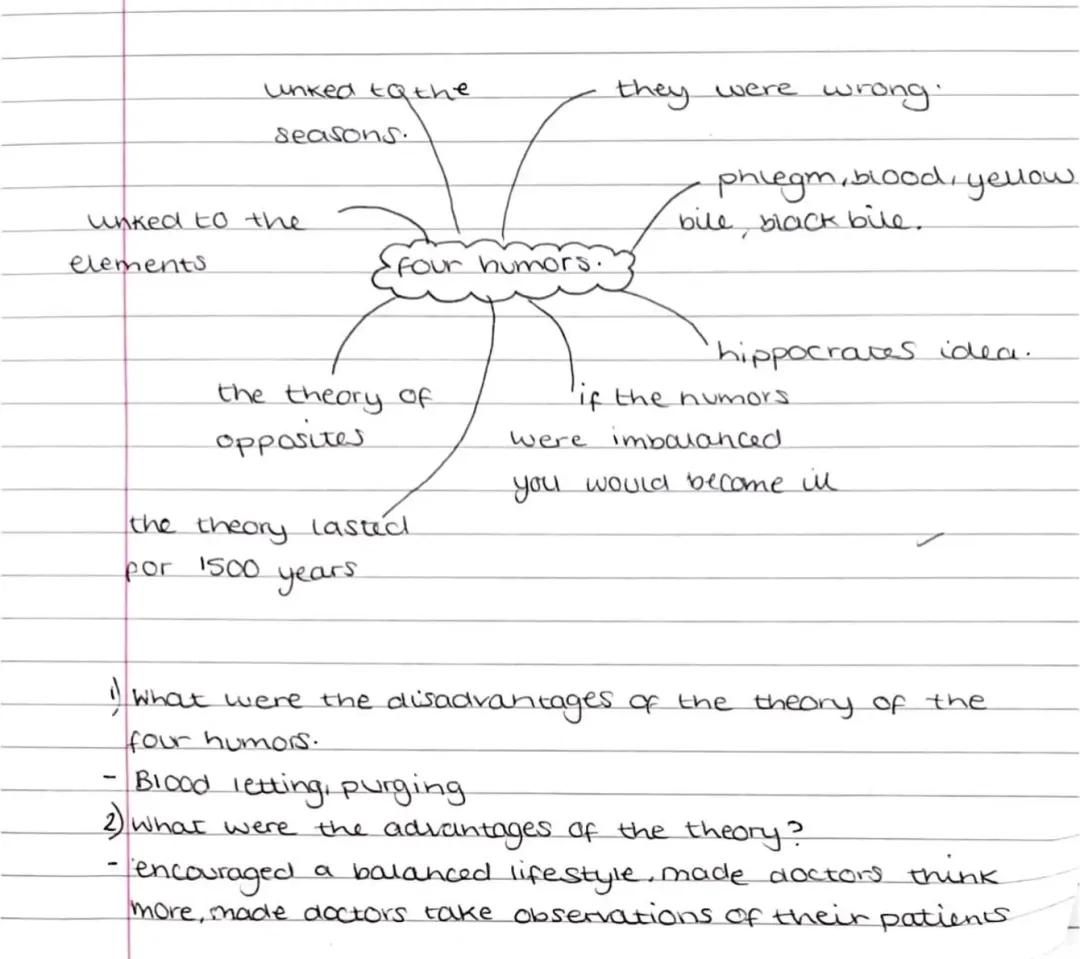 linked to the
seasons.
they were wrong.
phlegm, blood, yellow
bile, black bile.
linked to the
elements
four humors.
hippocrates idea.
the theory of
opposites
if the humors
were imbalanced
you would become ill
the theory lasted
for 1500 years
1) What were the disadvantages of the theory of the
four humors.
- Blood letting, purging
2) What were the advantages of the theory?
- encouraged a balanced lifestyle, made doctors think
more, made doctors take observations of their patients